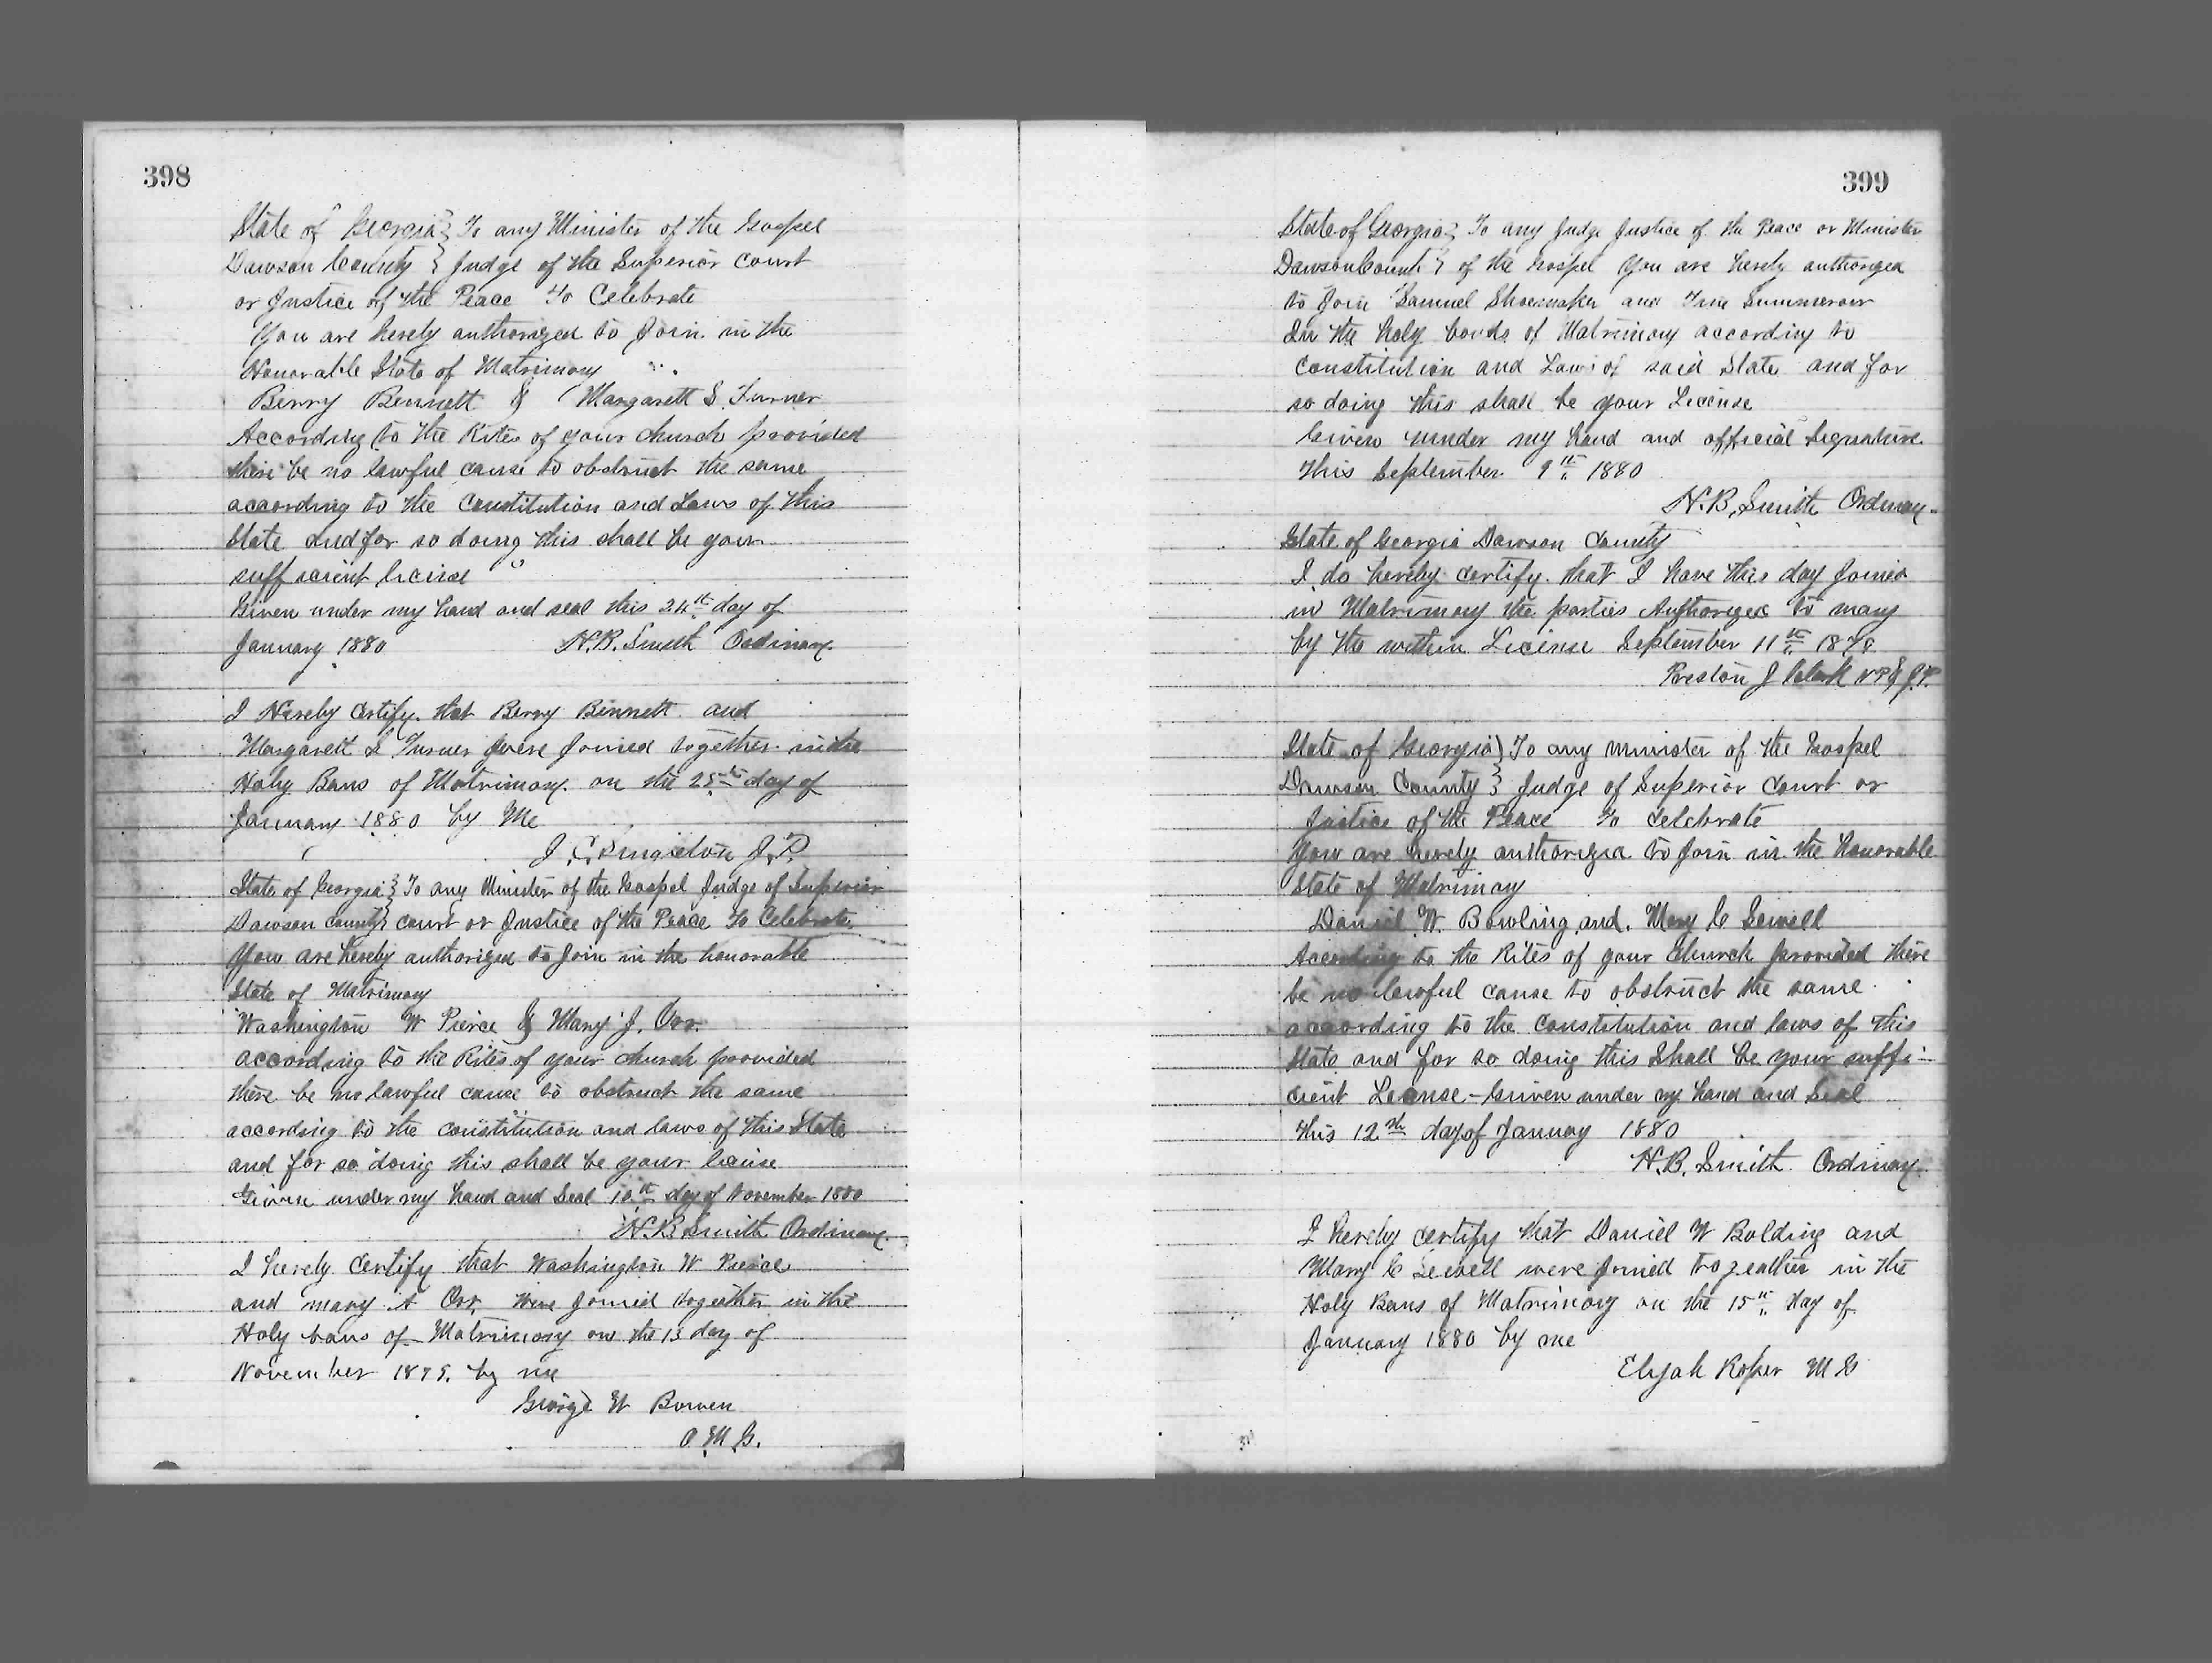 398
State of Georgia } To any Minister of the Gospel
Dawson County } Judge of the Superior court
or Justice of the Peace To Celebrate
You are herely authorized to Join in the
Honorable State of Matrimony
Berry Bennett & Margarett S. Turner
According to the Rites of your church provided
there be no lawful cause to obstruct the same
according to the Constitution and Laws of this
State and for so doing this shall be your
sufficient license
Given under my hand and seal this 24th day of
January 1880 H.B. Smith Ordinary
I Hereby Certify that Berry Binnett and
Margarett S Turner were Joined together in the
Holy Bans of Matrimony on the 25th day of
January 1880 by Me
J. C. Singleton J.P.
State of Georgia } To any Minister of the Gospel Judge of Superior
Dawson County } court or Justice of the Peace To Celebrate
You are hereby authorized to Join in the honorable
State of Matrimony
Washington W Pierce & Mary J. Orr
according to the Rites of your church provided
there be no lawful cause to obstruct the same
according to the constitution and laws of this State
and for so doing this shall be your license
Given under my hand and Seal 10th day of November 1880
H.B Smith Ordinary
I herely Certify that Washington W Pierce
and mary A Orr were Joined together in the
Holy bans of Matrimony on the 13 day of
November 1879. by me
George W Bowen
O.M.G.
399
State of Georgia } To any Judge Justice of the Peace or Minister
Dawson County } of the Gospel You are herely authorized
to Join Samuel Shoemaker and Summerour
In the holy bonds of Matrimony according to
Constitution and Laws of said State and for
so doing this shall be your License
Given under my hand and official Signature
This September 9th 1880
H.B. Smith Ordinary
State of Georgia Dawson County
I do hereby certify that I have this day Joined
in Matrimony the parties Authorized to mary
by the within License September 11th 1878
Preston J Clark N.P & J.P.
State of Georgia } To any minister of the Gospel
Dawson County } Judge of Superior Court or
Justice of the Peace To Celebrate
You are herely authorized to Join in the honorable
State of Matrimony
Daniel W. Bowling and Mary C Sewell
According to the Rites of your Church provided there
be no lawful cause to obstruct the same
according to the Constitution and laws of this
State and for so doing this Shall be your suffi-
cient License - Given under my hand and Seal
this 12th day of January 1880
H.B. Smith Ordinary
I hereby certify that Daniel W Bolding and
Mary C Sewell were Joined togeather in the
Holy Bans of Matrimony on the 15th day of
January 1880 by me
Elijah Roper M G